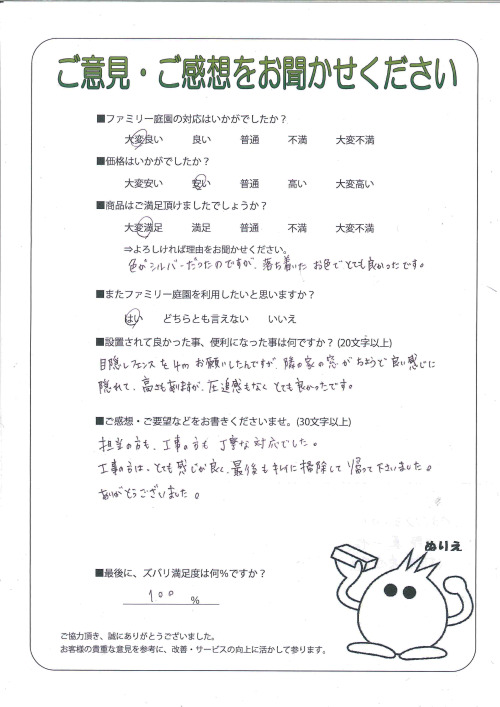 ご意見・ご感想をお聞かせください
■ファミリー庭園の対応はいかがでしたか？
大変良い 良い 普通 不満 大変不満
■価格はいかがでしたか？
大変安い 安い 普通 高い 大変高い
■商品はご満足頂けましたでしょうか？
大変満足 満足 普通 不満 大変不満
⇒よろしければ理由をお聞かせください。
色がシルバーだったのですが、落ち着いたお色でとても良かったです。
■またファミリー庭園を利用したいと思いますか？
はい どちらとも言えない いいえ
■設置されて良かった事、便利になった事は何ですか？(20文字以上)
目隠しフェンスを4mお願いしたんですが、隣の家の窓がちょうど良い感じに
隠れて、高さも有りますが、圧迫感もなくとても良かったです。
■ご感想・ご要望などをお書きくださいませ。(30文字以上)
担当の方も、工事の方も丁寧な対応でした。
工事の方は、とても感じが良く、最後もキレイに掃除して帰って下さいました。
ありがとうございました。
ぬりえ
■最後に、ズバリ満足度は何％ですか？
100 ％
ご協力頂き、誠にありがとうございました。
お客様の貴重な意見を参考に、改善・サービスの向上に活かして参ります。